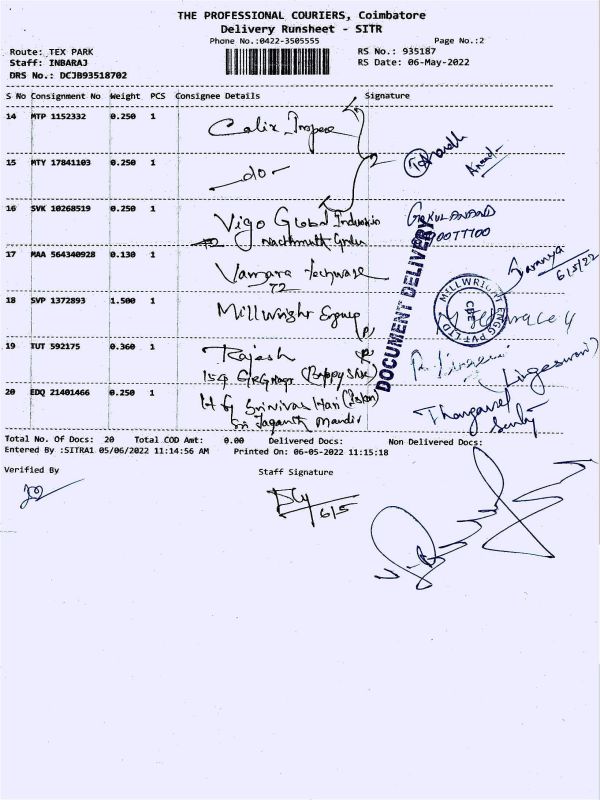 THE PROFESSIONAL COURIERS, Coimbatore
Delivery Runsheet - SITR
Phone No.:0422-3505555
Page No.:2
Route: TEX PARK
RS No.: 935187
Staff: INBARAJ
RS Date: 06-May-2022
DRS No.: DCJB93518702
S No Consignment No Weight PCS Consignee Details Signature
14 MTP 1152332 0.250 1
15 MTY 17841103 0.250 1 -do- Anand
16 SVK 10268519 0.250 1 Vigo Global GOKUL ANAND
17 MAA 564340928 0.130 1 Saranya
72 6/5/22
18 SVP 1372893 1.500 1 Millwright
MILLWRIGHT ENGG PVT LTD
CBE
DOCUMENT DELIVERY
19 TUT 592175 0.360 1 Rajesh
159
20 EDQ 21401466 0.250 1 H G Srinivas Hari Thangavel
Sri Jaganth Mandir
Total No. Of Docs: 20 Total COD Amt: 0.00 Delivered Docs: Non Delivered Docs:
Entered By :SITRA1 05/06/2022 11:14:56 AM Printed On: 06-05-2022 11:15:18
Verified By Staff Signature
6/5